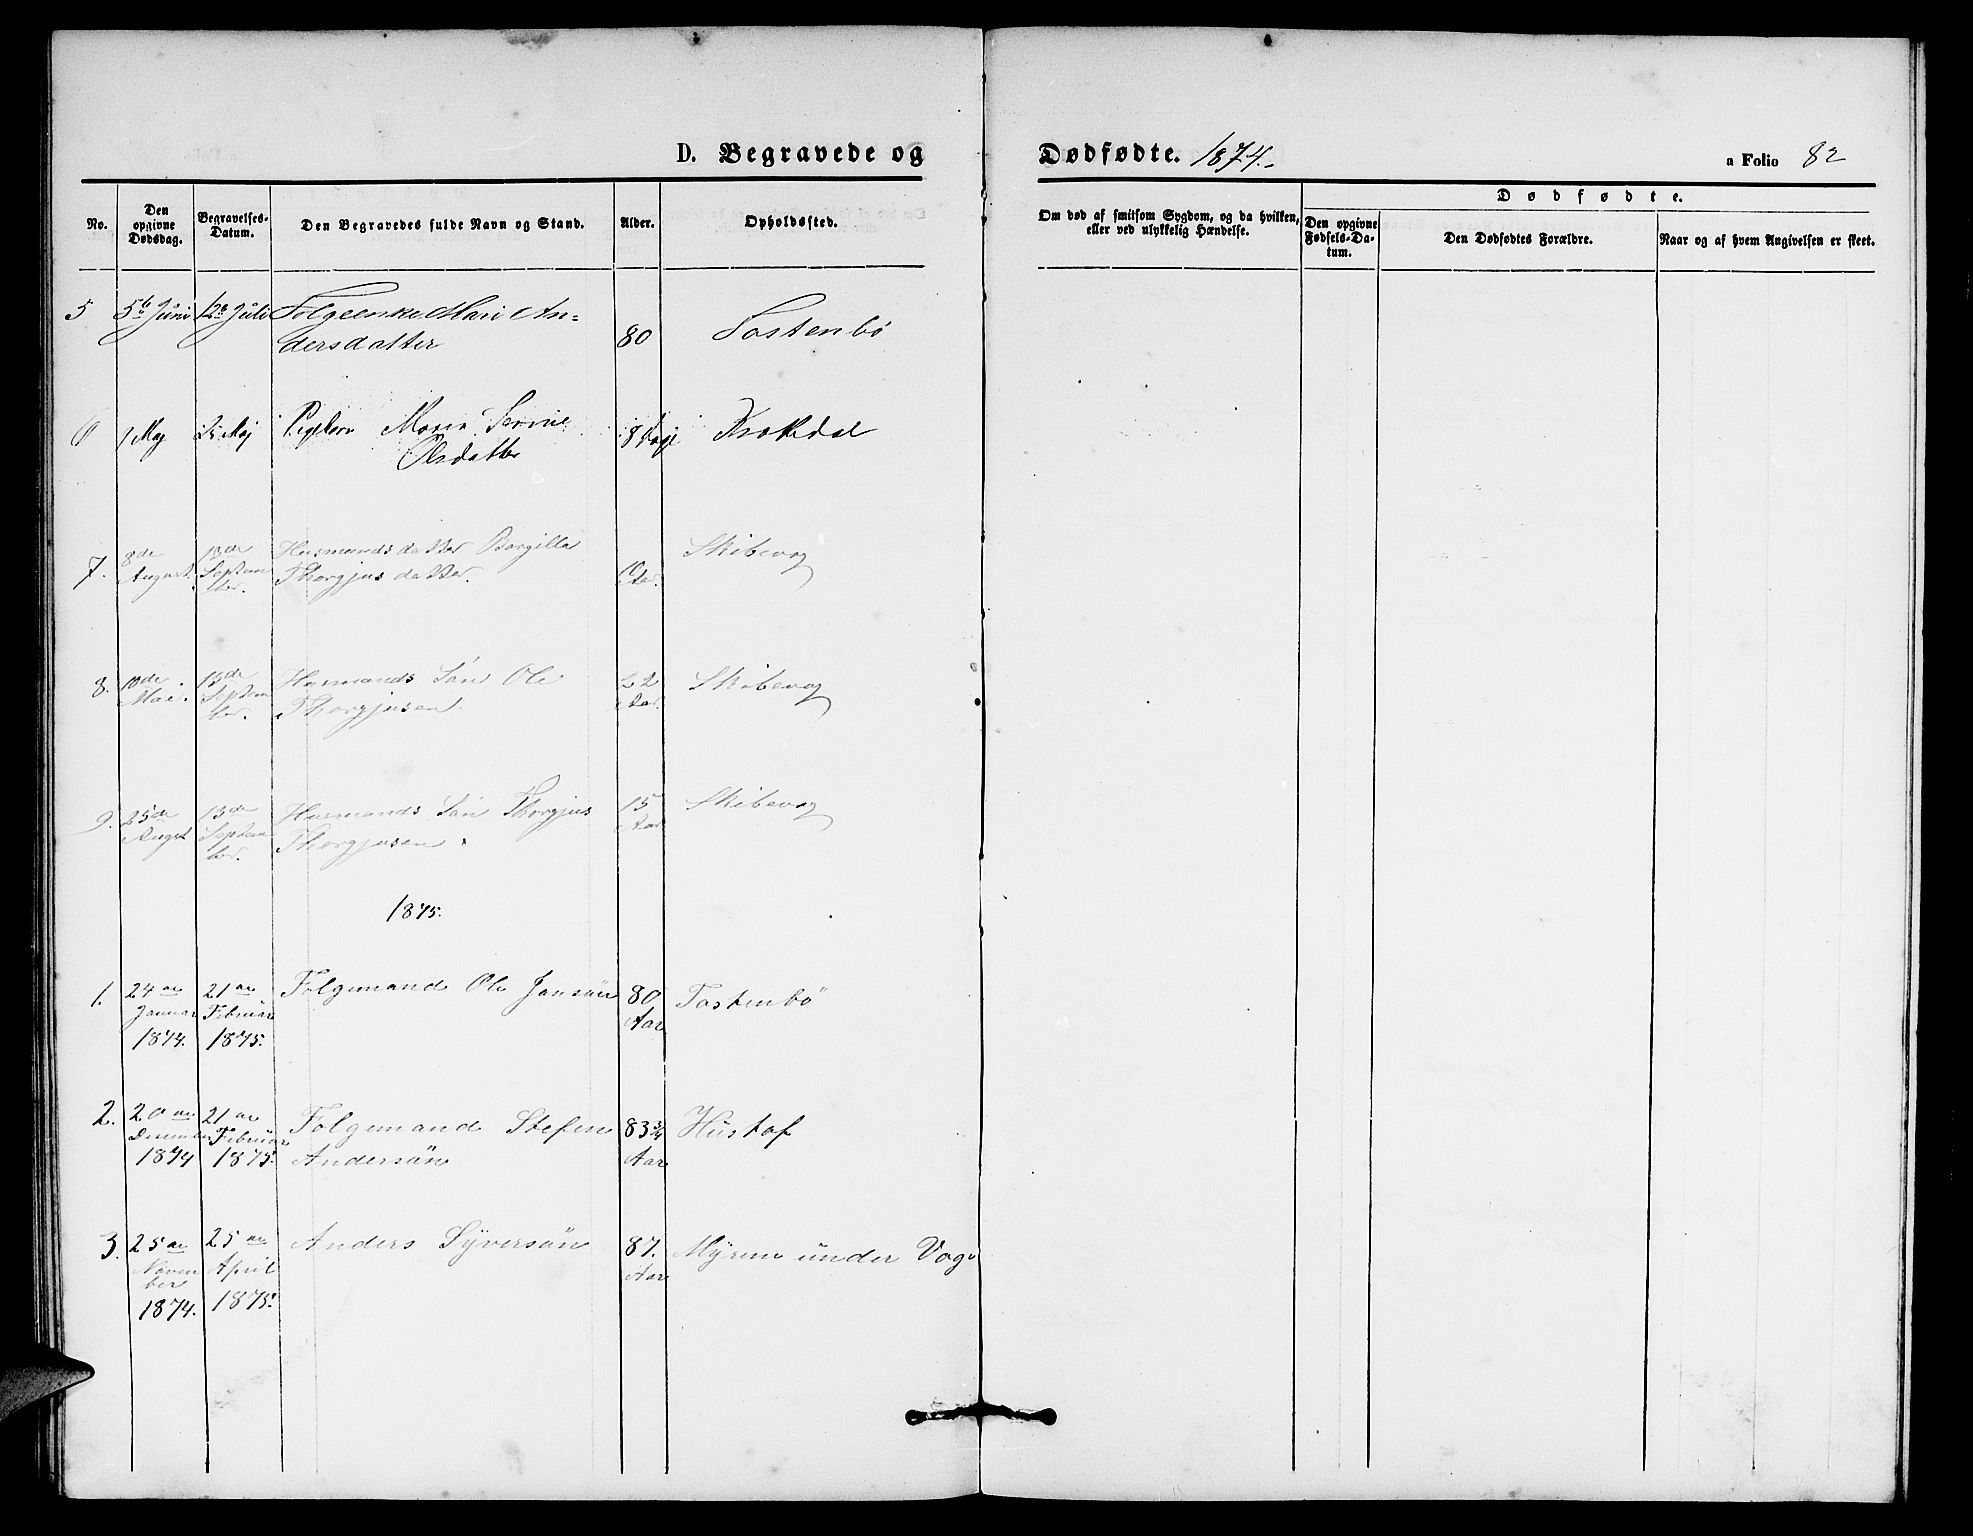 D. Begravede og Dødfødte. 1874.
a Folio 82
No.
Den opgivne Dødsdag.
Begravelses-Datum.
Den Begravedes fulde Navn og Stand.
Alder.
Opholdssted.
Om død af smitsom Sygdom, og da hvilken,
eller ved ulykkelig Hændelse.
Dødfødte.
Den opgivne Fødsels-Da-tum.
Den Dødfødtes Forældre.
Naar og af hvem Angivelsen er skeet.
5 5te Juni 12te Juli Folgeenke Mari An=
dersdatter 80 Tostenbö
6 1 Maj 25 Maj Pigebarn Maria
Olsdatter 8 Dage Krokedal
7. 8de August 13de Septem ber. Husmandsdatter Borgilla
Thorgjusdatter. Aar. Skibevog
8. 10de Mai. 13de Septem ber. Husmands Sön Ole
Thorgjusen 22 Aar. Skibevog
9. 25de Augst 13de Septem ber. Husmands Sön Thorgjus
Thorgjusen 15 Aar Skibevog
1875.
1. 24de Januar 1874. 21de Februar 1875. Folgemand Ole Jansön 80 Aar Tostenbö
2. 20de Desember 1874 21de Februar 1875. Folgemand Stefen
Andersön 83 3/4 Aar Hustof
3. 25de Novem ber 1874. 25de April 1875. Anders Syversön 87. Aar Myrene under Vog